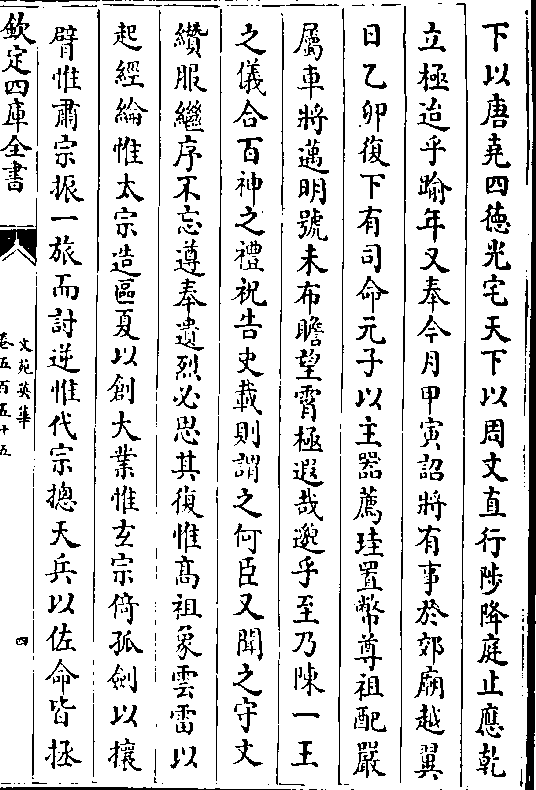 下以唐堯四徳光宅天下以周文直行陟降庭止應乾
立極迨乎踰年又奉今月甲寅詔將有事於郊廟越翼
日乙卯復下有司命元子以主器薦珪置幣尊祖配嚴
屬車將邁明號未布瞻望霄極遐哉邈乎至乃陳一王
之儀合百神之禮祝告史載則謂之何臣又聞之守文
纘服繼序不忘遵奉遺烈必思其復惟髙祖象雲雷以
起經綸惟太宗造區夏以創大業惟玄宗倚孤劍以攘
臂惟肅宗振一旅而討逆惟代宗摠天兵以佐命皆拯
欽定四庫全書
文苑英華
卷五百五十五
四